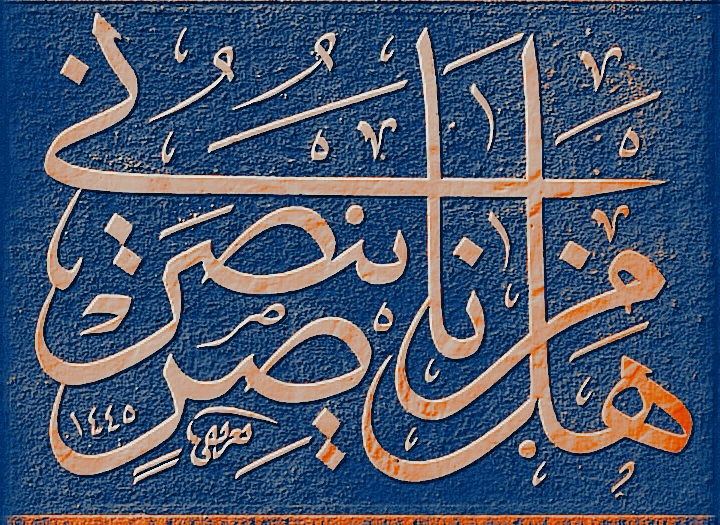 هَلْ مِنْ نَاصِرٍ يَنْصُرُنِي
١٤٤٥